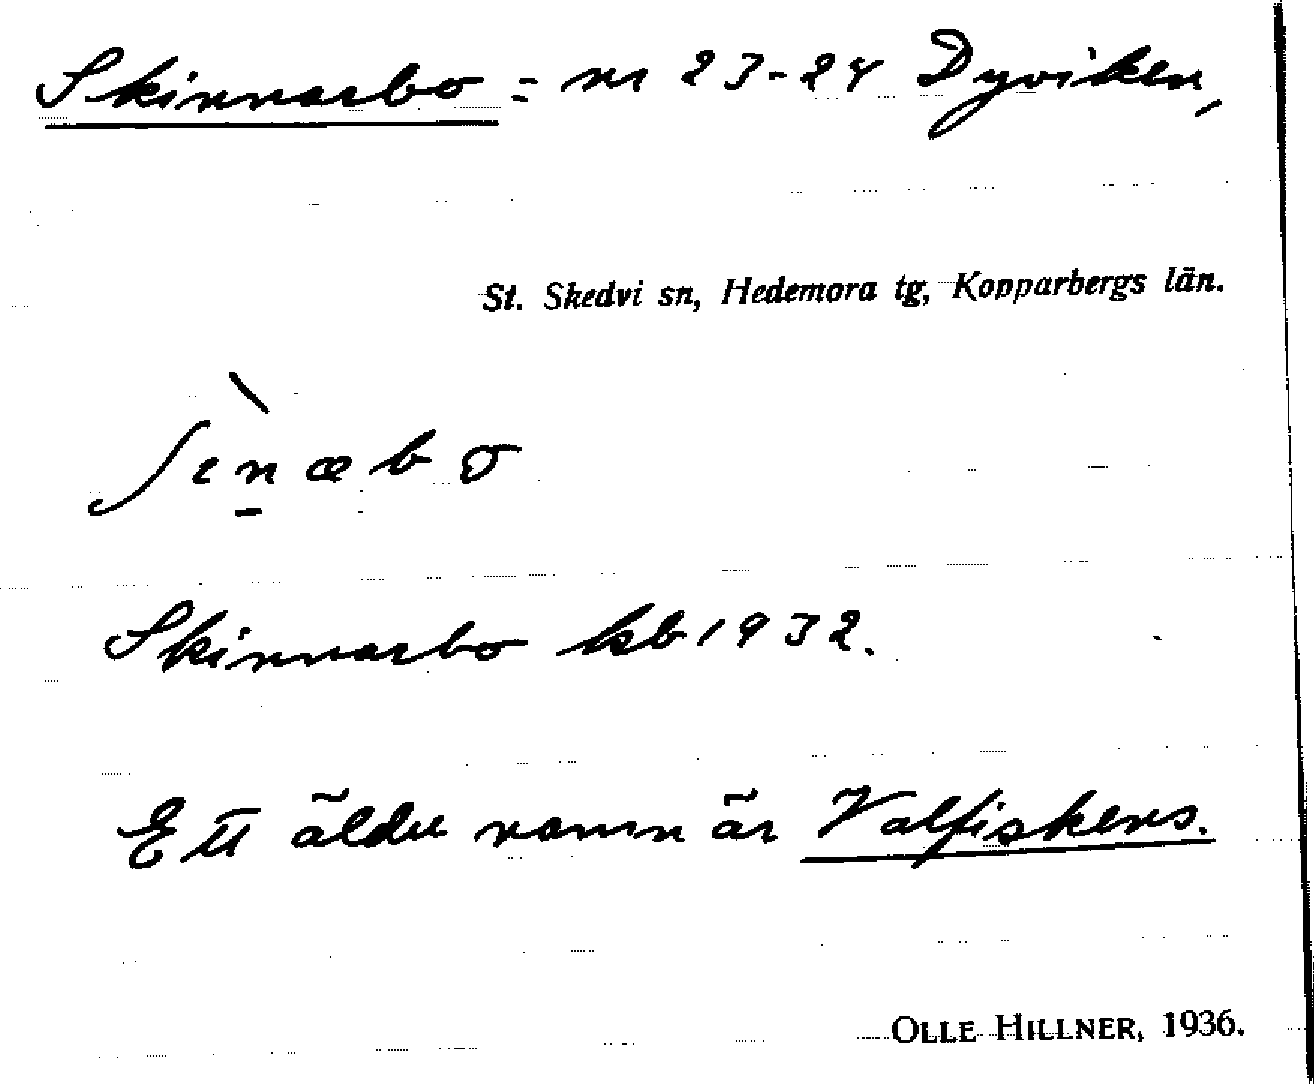 Skinnarbo = nr 23-24 Dyviken,
St. Skedvi sn, Hedemora tg, Kopparbergs län.
Skinnarbo ksb 1932.
Ett äldre namn är Valfiskens.
OLLE HILLNER, 1936.